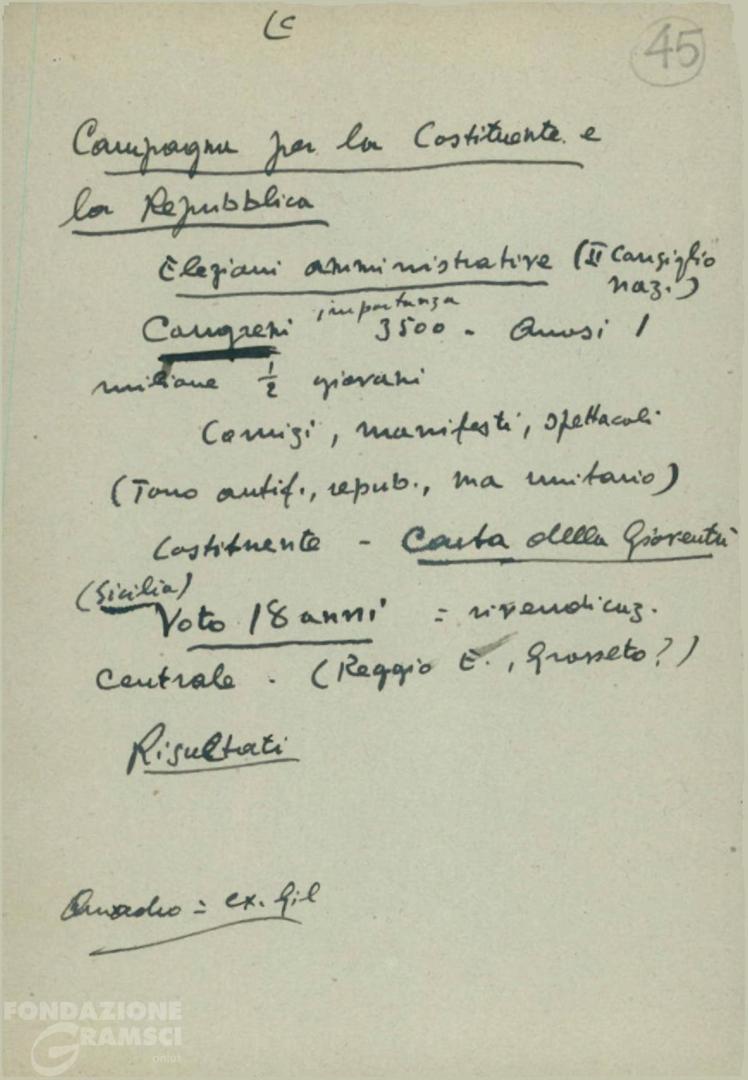 45
Campagna per la Costituente e
la Repubblica
Elezioni amministrative (II Consiglio
naz.)
importanza
Congressi 3500 - Quasi 1
milione 1/2 giovani
Comizi, manifesti, spettacoli
(Tono antif., repub., ma unitario)
Costituente - Carta della Gioventù
(Sicilia)
Voto 18 anni = rivendicaz.
centrale. (Reggio E., Grosseto?)
Risultati
Quadro = ex. Gil
FONDAZIONE
GRAMSCI
onlus